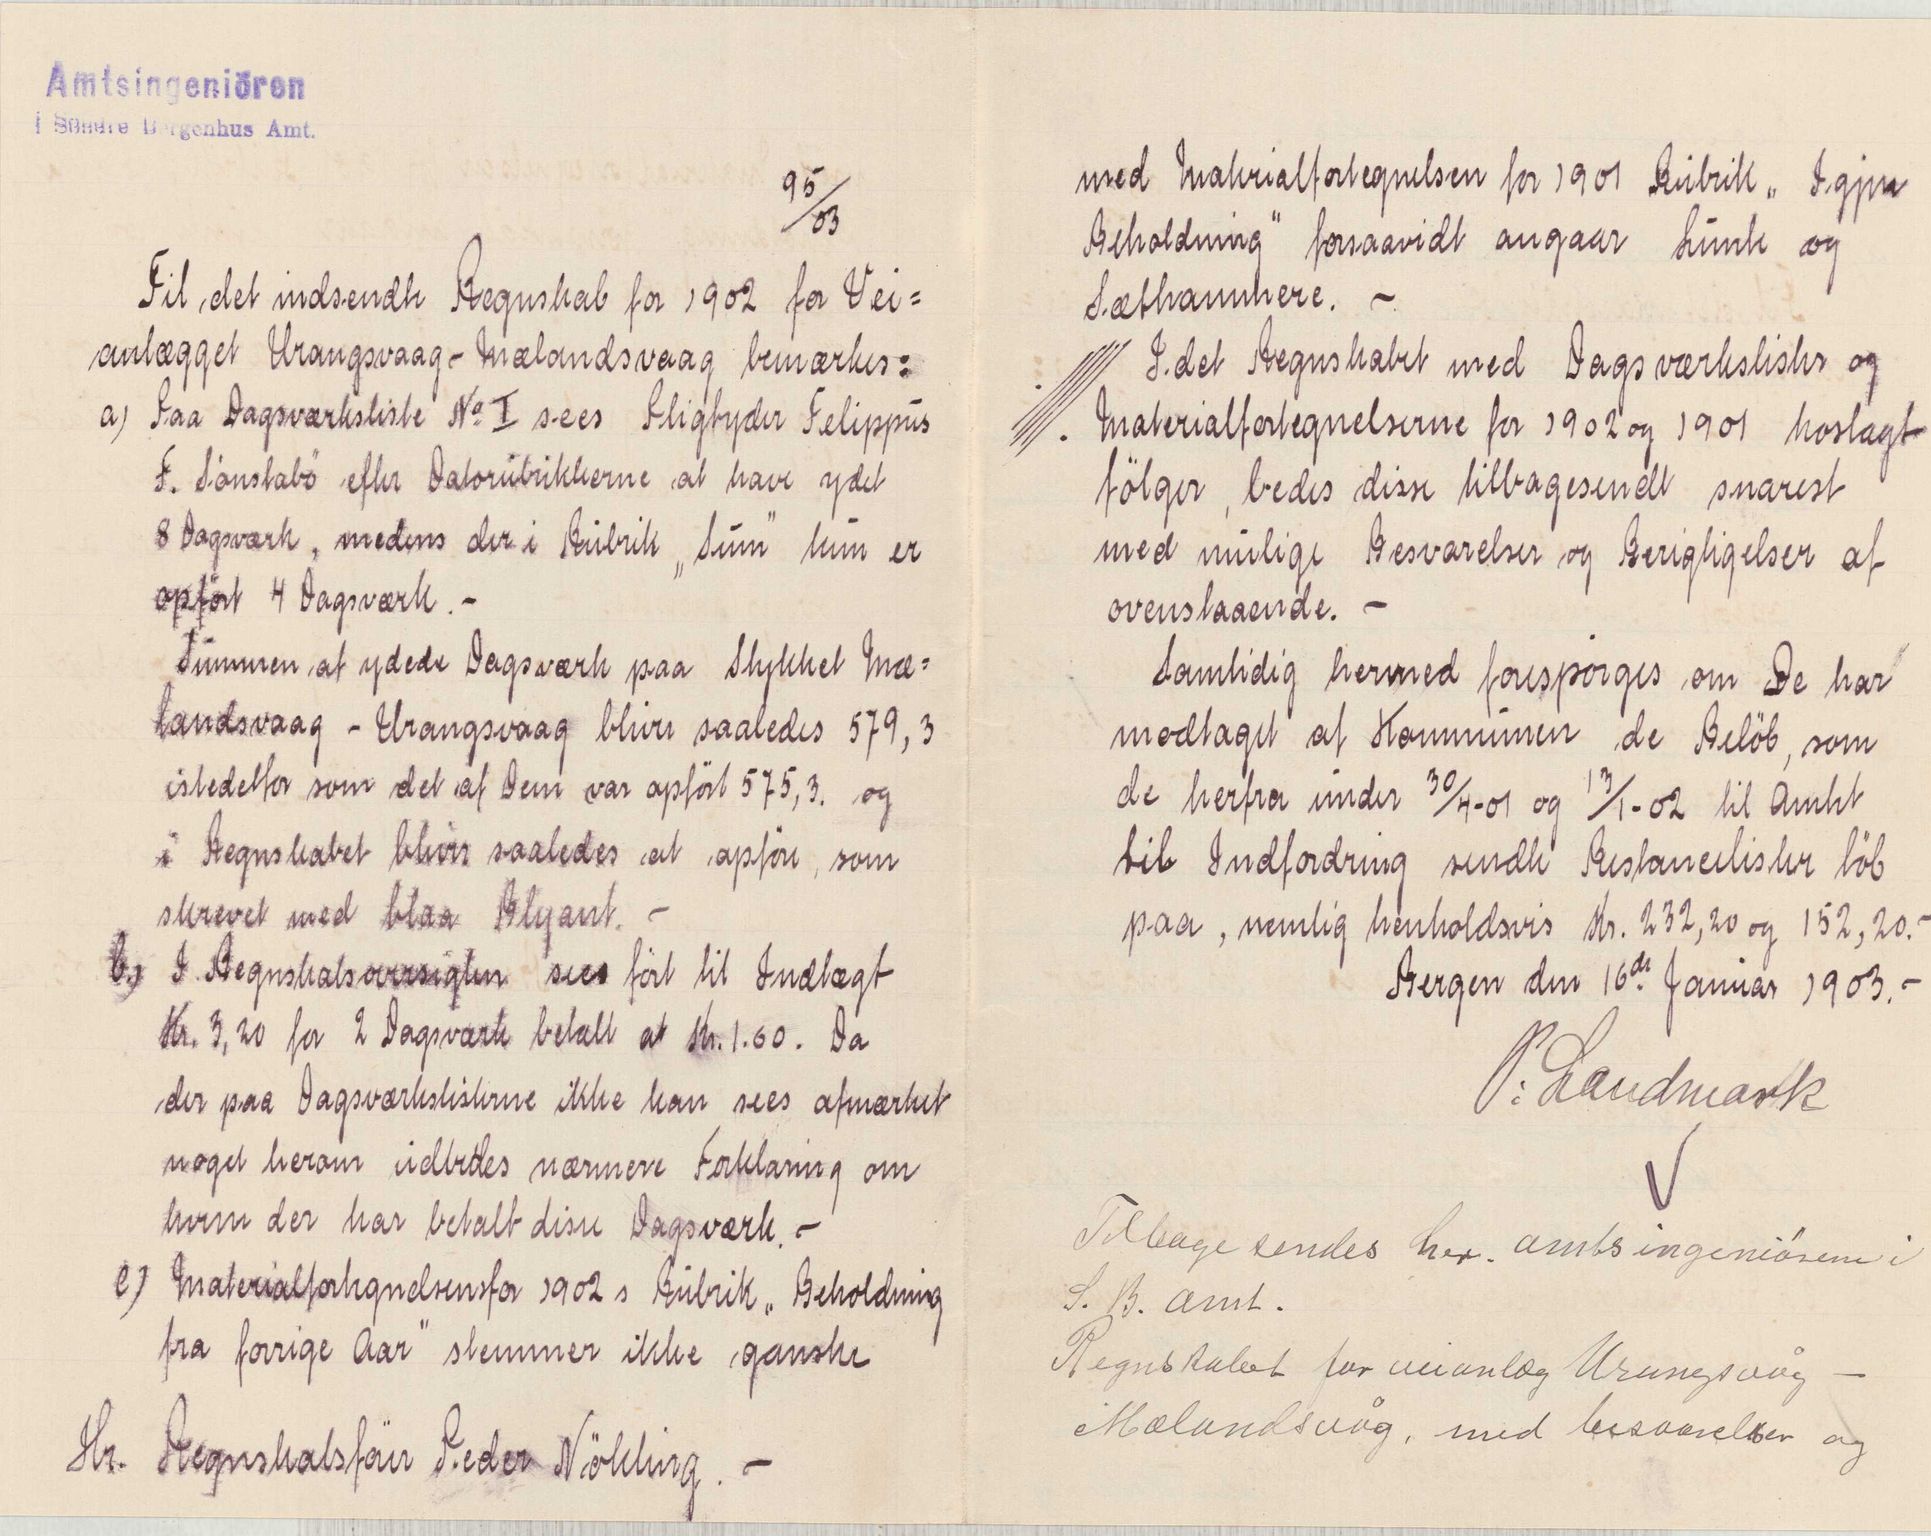 Amtsingeniören
i Söndre Bergenhus Amt.
95/03
Til det indsendte Regnskab for 1902 for Vei=
anlægget Urangsvaag - Mælandsvaag bemærkes:
a) Paa Dagsværksliste No I sees Pligtyder Filippus
F. Sönstabö efter Datorubrikkerne at have ydet
8 Dagsværk, medens der i Rubrik „Sum" kun er
opfört 4 Dagsværk. -
Summen af ydede Dagsværk paa Stykket Mæ=
landsvaag - Urangsvaag bliver saaledes 579,3
istedetfor som det af Dem var opfört 575,3. og
i Regnskabet bliver saaledes at opföre, som
skrevet med blaa Blyant. -
b.) I Regnskabsoversigten sees fört til Indtægt
Kr. 3,20 for 2 Dagsværk betalt at Kr. 1.60. Da
der paa Dagsværkslisterne ikke kan sees afmærket
noget herom udbedes nærmere Forklaring om
hvem der har betalt disse Dagsværk. -
c) Materialfortegnelsens for 1902 s Rubrik „ Beholdning
fra forrige Aar" stemmer ikke ganske
Hr. Regnskabsförer Peder Nökling. -
med Materialfortegnelsen for 1901 Rubrik „ Igjen
Beholdning" forsaavidt angaar Lunte og
Sæthammere. -
I det Regnskabet med Dagsværkslister og
Materialfortegnelserne for 1902 og 1901 hoslagt
fölger, bedes disse tilbagesendt snarest
med mulige Besvarelser og Berigtigelser af
ovenstaaende. -
Samtidig hermed forespörges om De har
modtaget af Kommunen de Belöb, som
de herfra under 30/4-01 og 13/1-02 til Amtet
til Indfordring sendte Restancelister löb
paa, nemlig henholdsvis Kr. 232,20 og 152,20. -
Bergen den 16de Januar 1903. -
P. Landmark
Tilbage sendes her. amts ingeniörene i
S. B. amt.
Regnskabet for veianlæg Urangsvåg -
Mælandsvåg, med besvarelser og